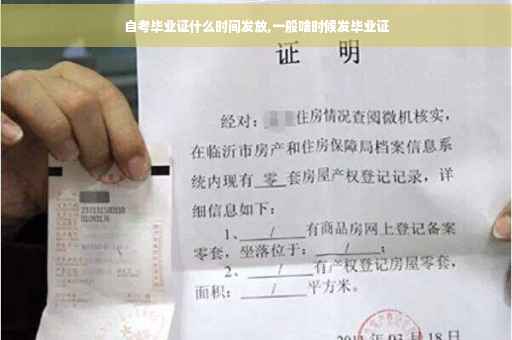 自考毕业证什么时间发放,一般啥时候发毕业证
证 明
经对：住房情况查阅微机核实，
在临沂市房产和住房保障局档案信息系
统内现有 零 套房屋产权登记记录，详
细信息如下：
1、 / 有商品房网上登记备案
零套，坐落位于： / ；
2、 / 有产权登记房屋零套，
面积： / 平方米。
03月18日